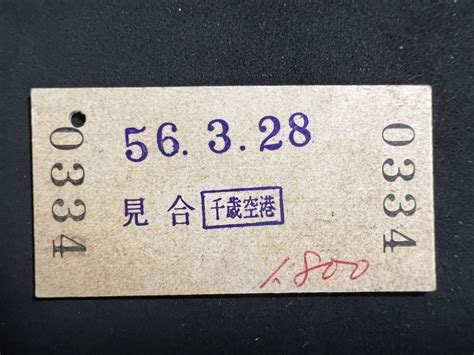 0334
56.3.28
見合 千歳空港
1.800
0334